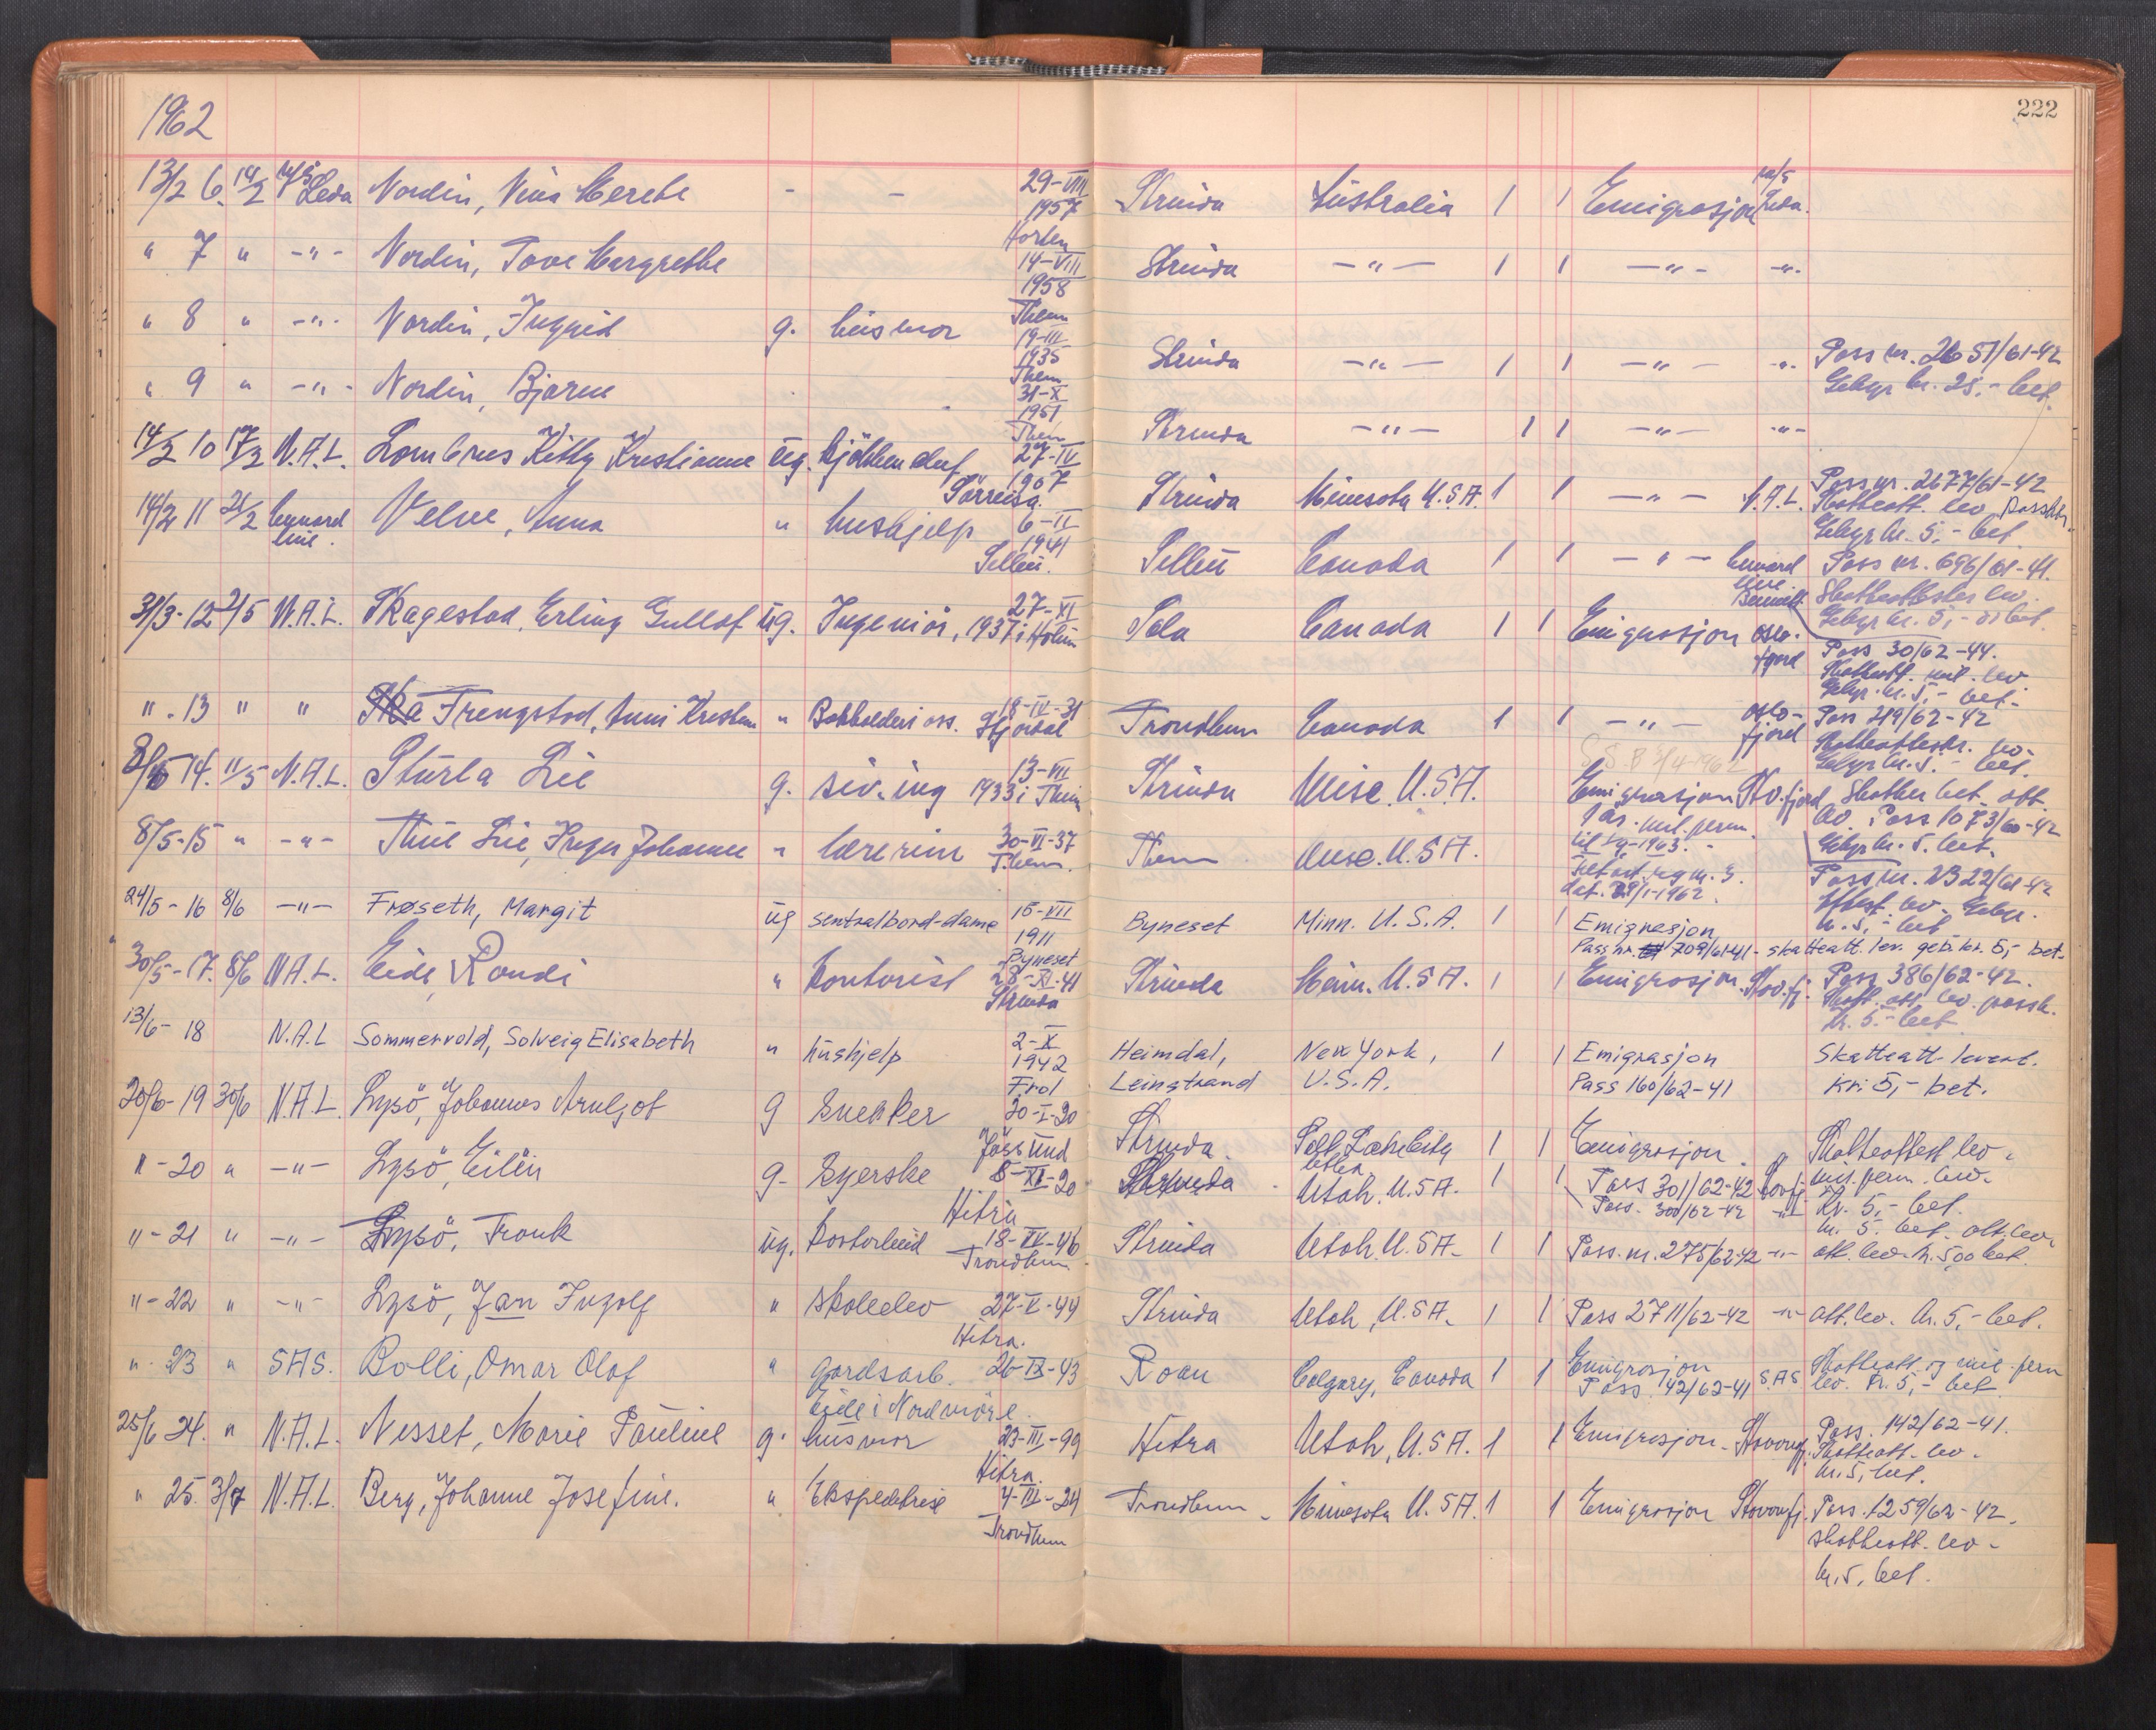 1962
222
13/2 6. 14/2 M/S Leda Nordin, Nina Merete - - 29-VIII 1957 Horten Strinda Australia 1 1 Emigrasjon m/s Leda.
" 7 " -"- Nordin, Tove Margrethe 14-VIII 1958 Them Strinda -"- 1 1 -"- -"-
" 8 " -"- Nordin, Ingrid g. husmor 19-III 1935 Them Strinda -"- 1 1 -"- -"- Pass nr. 2651/61-42
Gebyr kr. 25,- bet.
" 9 " -"- Nordin, Bjarne 31-X 1951 Them Strinda -"- 1 1 -"- -"-
14/2 10 17/2 N.A.L. Kitty Kristianne ug. 27-IV 1907 Sørreisa. Strinda Minesota U.S.A. 1 1 -"- N.A.L. Pass nr. 2677/61-42
Skatteatt. lev.
Gebyr kr. 5,- bet
14/2 11 21/2 Cunard line. Velve, Anna " hushjelp 6-II 1941 Selbu. Selbu Canada 1 1 -"- Cunard line. Pass nr. 696/61-41.
Skatteattester lev.
Gebyr kr. 5,- bet.
31/3-12 2/5 N.A.L. Skagestad, Erling Gullof ug. Ingeniør, 27-XI 1937 i Holum Sola Canada 1 1 Emigrasjon Oslofjord Pass 30/62-44.
Skatteatt. mil. lev
Gebyr. kr. 5,- bet.
"-13 " " Frengstad, Anni Kristin " Bokholderi ass. 18-IV-31 Stjørdal Trondheim Canada 1 1 -"- Oslofjord Pass 219/62-42
Skatteattestr. lev.
Gebyr kr. 5.- bet.
8/5 14. 11/5 N.A.L. Sturla Lie g. siv.ing 13-VII 1933 i Them Strinda Wisc. U.S.A. Emigrasjon Stv.fjord Skatter bet. att.
lev. Pass. 1073/60-42
Gebyr kr. 5. bet.
1 års. mil. perm.
til 1/9-1963.
dat. 29/1-1962.
8/5-15 " -"- Thue Lie, Inger Johanne " lærerinne 30-VI-37 Them. Them Wisc. U.S.A. Pass nr. 2322/61-42
Attest. lev. Gebyr.
kr. 5,- bet
24/5-16 8/6 -"- Frøseth, Margit ug sentralbord-dame 15-VII 1911 Byneset Byneset Minn. U.S.A. 1 1 Emigrasjon
Pass nr. 709/61-41 - skatteatt. lev. geb. kr. 5,- bet.
30/5-17. 8/6 N.A.L. Eide, Randi " kontorist 28-XI-41 Strinda Strinda Minn. U.S.A. 1 1 Emigrasjon. Stav.fj. Pass. 386/62-42.
Skatt. att. lev. passk.
kr. 5.- bet
13/6-18 N.A.L Sommervold, Solveig Elisabeth " hushjelp 2-X 1942 Frol Heimdal, Leinstrand New York, U.S.A. 1 1 Emigrasjon
Pass 160/62-41 Skatteatt. levert.
Kr. 5,- bet.
20/6-19 30/6 N.A.L. Lysö, Johannes Arnljot g Snekker 20-I-20 Jössund Strinda. Salt Lake City Utah. 1 1 Emigrasjon. Skatteattest lev.
mil. perm. lev.
Kr. 5,- bet.
Pass 301/62-42 Stavfj.
"-20 " -"- Lysö, Eilin g- Syerske 8-XI-20 Hitra Strinda. Utah. U.S.A. 1 1 Pass. 300/62-42 -"- kr. 5. bet. att. lev.
"-21 " -"- Lysö, Frank ug. kontorbud 18-IV-46 Trondheim Strinda Utah. U.S.A. 1 1 Pass. nr. 275/62-42 -"- att. lev. kr. 5,00 bet.
"-22 " -"- Lysö, Jan Ingolf " skoleelev 27-V-44 Hitra. Strinda Utah, U.S.A. 1 1 Pass 2711/62-42 -"- att. lev. kr. 5,- bet.
"-23 " SAS. Bolli, Omar Olaf " gårdsarb. 26-IX-43 Eide i Nordmöre Roan Calgary, Canada 1 1 Emigrasjon
Pass. 42/62-41 S.A.S Skatteatt. og mil. perm
lev. kr. 5,- bet
25/6 24. " N.A.L. Nesset, Marie Pauline g. husmor 23-III-99 Hitra. Hitra Utah, U.S.A. 1 1 Emigrasjon. Stavangfj. Pass. 142/62-41.
Skatteatt. lev.
kr. 5,- bet.
" 25. 3/7 N.A.L. Berg, Johanne Josefine. " Ekspeditrise 4-III-24 Trondheim Trondheim. Minesota U.S.A. 1 1 Emigrasjon Stavangfj. Pass. 1259/62-42.
skatteatt. lev.
kr. 5, bet.